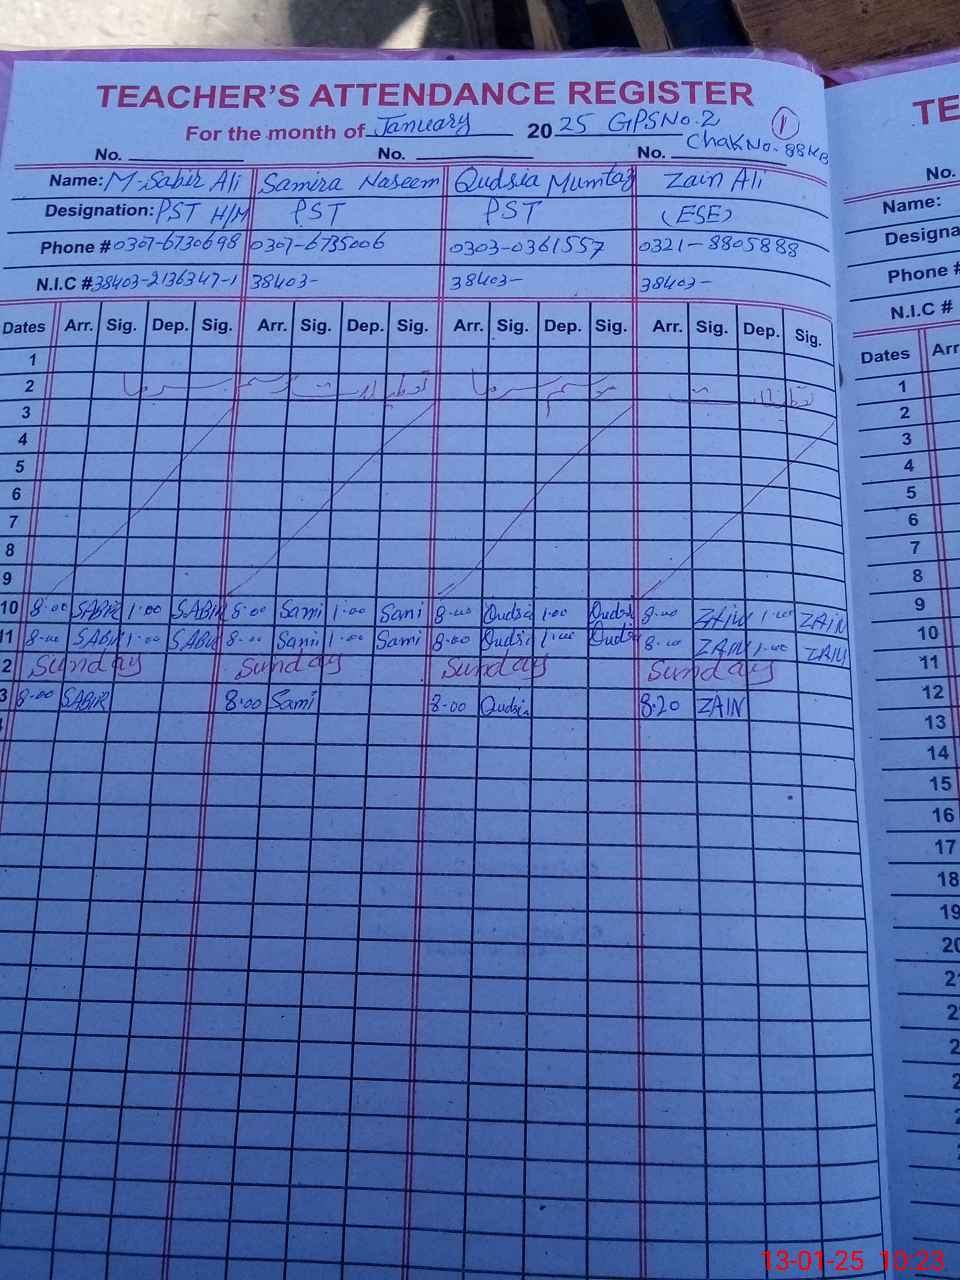 TEACHER'S ATTENDANCE REGISTER
For the month of January 2025 GPS No. 2
Chak No. 88 KB
1
No. No. No.
Name: M-Sabir Ali Samira Naseem Qudsia Mumtaz Zain Ali
Designation: PST H/M PST PST (ESE)
Phone # 0307-6730698 0307-6735006 0303-0361557 0321-8805888
N.I.C # 38403-2136347-1 38403- 38403- 38403-
Dates Arr. Sig. Dep. Sig. Arr. Sig. Dep. Sig. Arr. Sig. Dep. Sig. Arr. Sig. Dep. Sig.
1
2 تعطیلات موسم سرما
3
4
5
6
7
8
9
10 8:00 SABIR 1:00 SABIR 8:00 Sami 1:00 Sami 8:00 Qudsia 1:00 Qudsia 8:00 ZAIN 1:00 ZAIN
11 8:00 SABIR 1:00 SABIR 8:00 Sami 1:00 Sami 8:00 Qudsia 1:00 Qudsia 8:00 ZAIN 1:00 ZAIN
2 Sunday Sunday Sunday Sunday
3 8:00 SABIR 8:00 Sami 8:00 Qudsia 8:20 ZAIN
TE
No.
Name:
Designa
Phone #
N.I.C #
Dates Arr
1
2
3
4
5
6
7
8
9
10
11
12
13
14
15
16
17
18
19
20
13-01-25 10:23